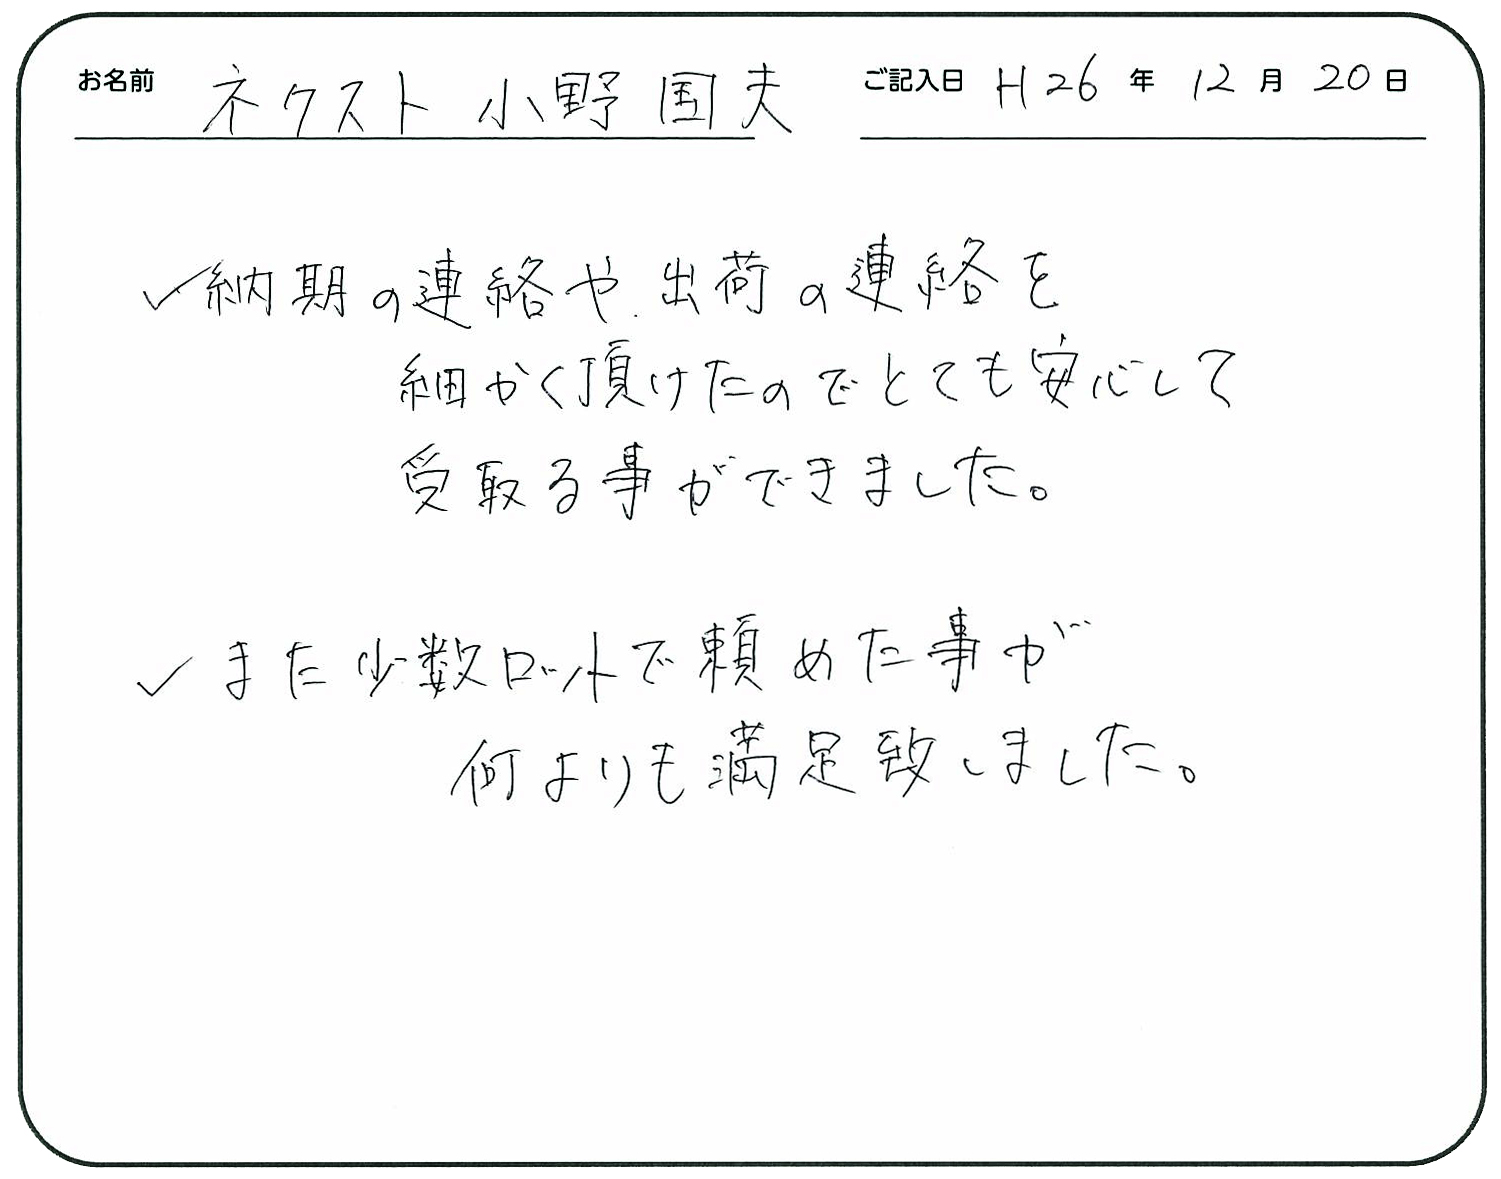 お名前 ネクスト 小野 国夫 ご記入日 H26年 12月 20日
✓納期の連絡や、出荷の連絡を
細かく頂けたのでとても安心して
受取る事ができました。
✓また少数ロットで頼めた事が
何よりも満足致しました。